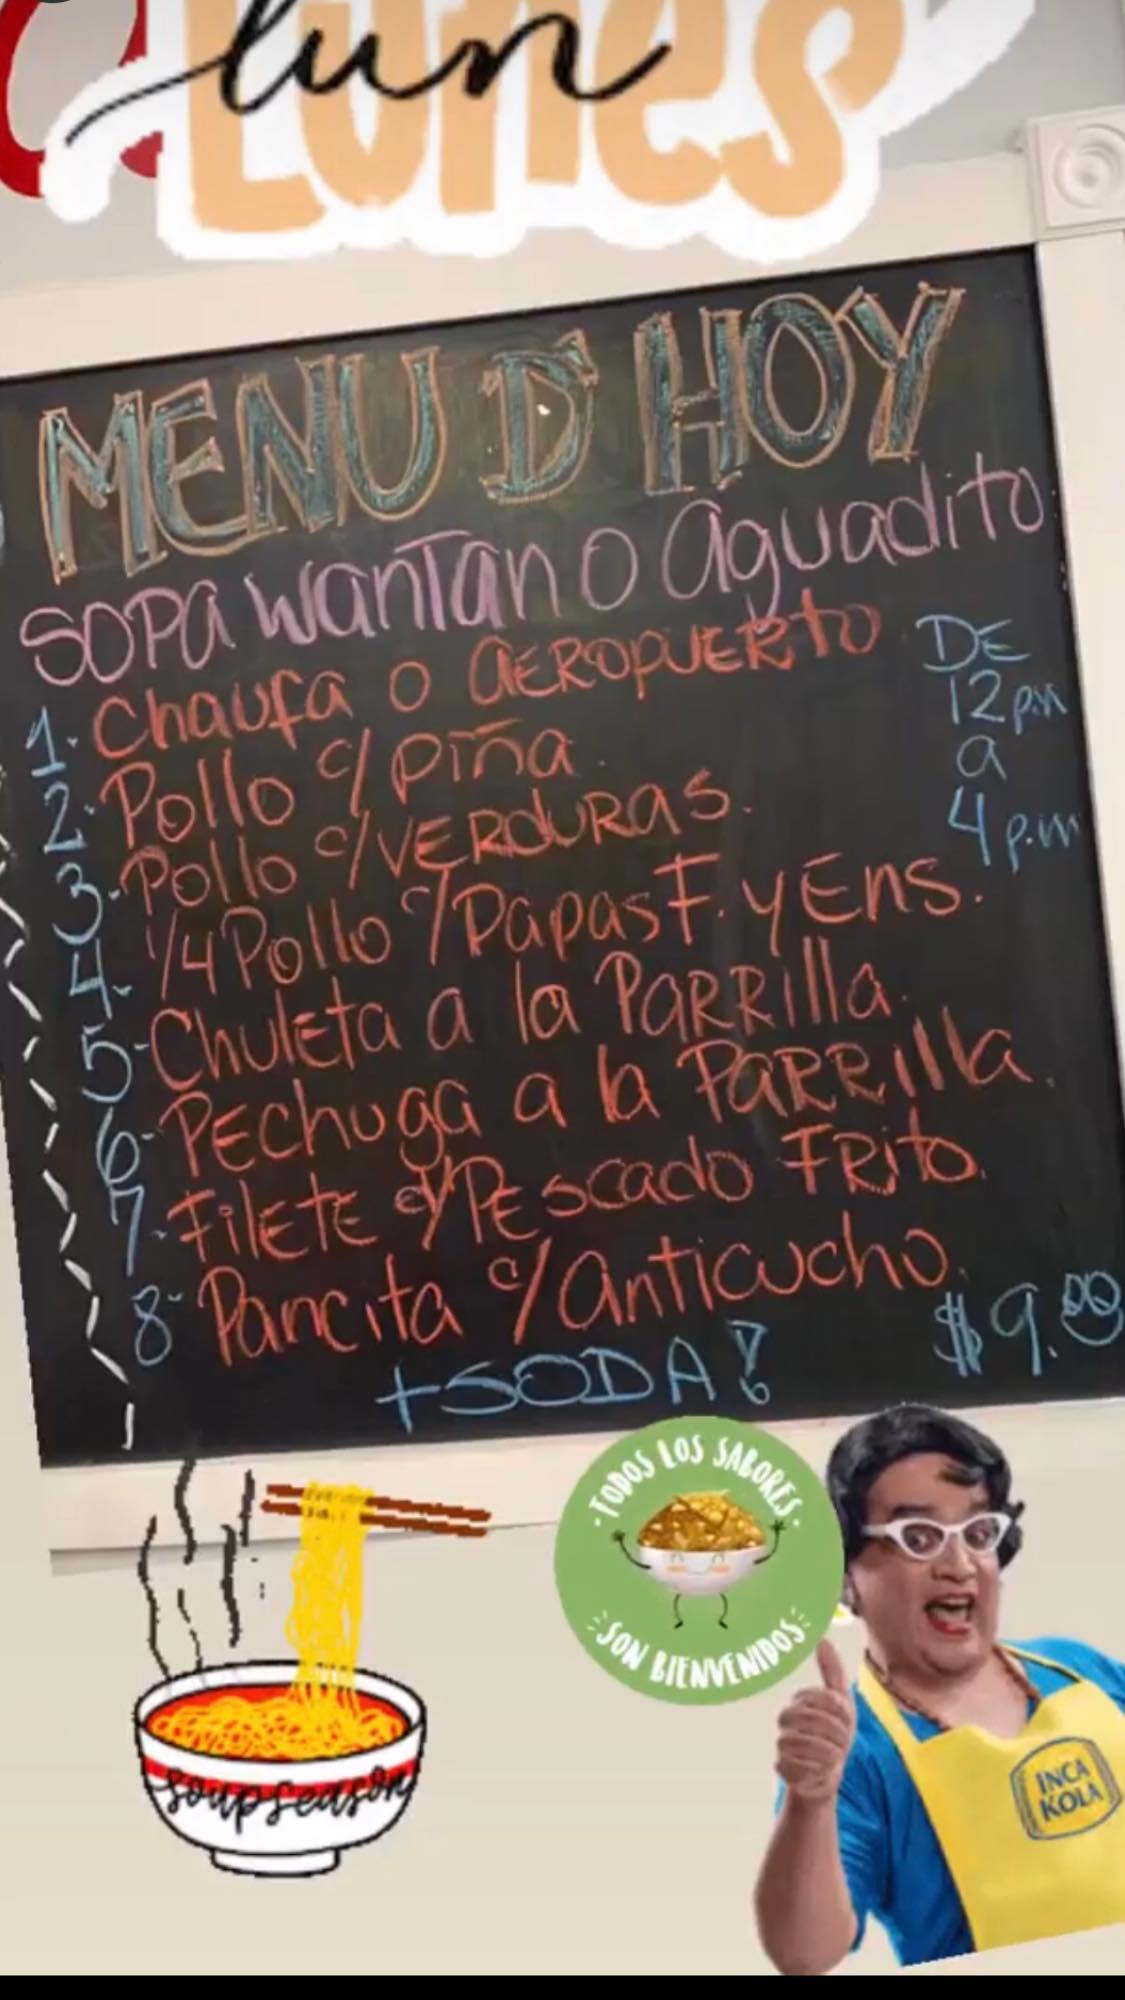 lun
Lunes
MENU D' HOY
SOPA WANTAN O Aguadito
1. Chaufa o AEROPUERTO
2. Pollo c/ piña.
3- Pollo c/ VERDURAS.
4- 1/4 Pollo c/ Papas F. y Ens.
5- Chuleta a la PARRilla.
6- PEchuga a la PARRilla.
7- FilETE d/ PEscado FRito.
8- Pancita c/ Anticucho.
DE
12 p.m
a
4 p.m
+ SODA!
$9.00
soup season
·TODOS LOS SABORES·
SON BIENVENIDOS
INCA
KOLA